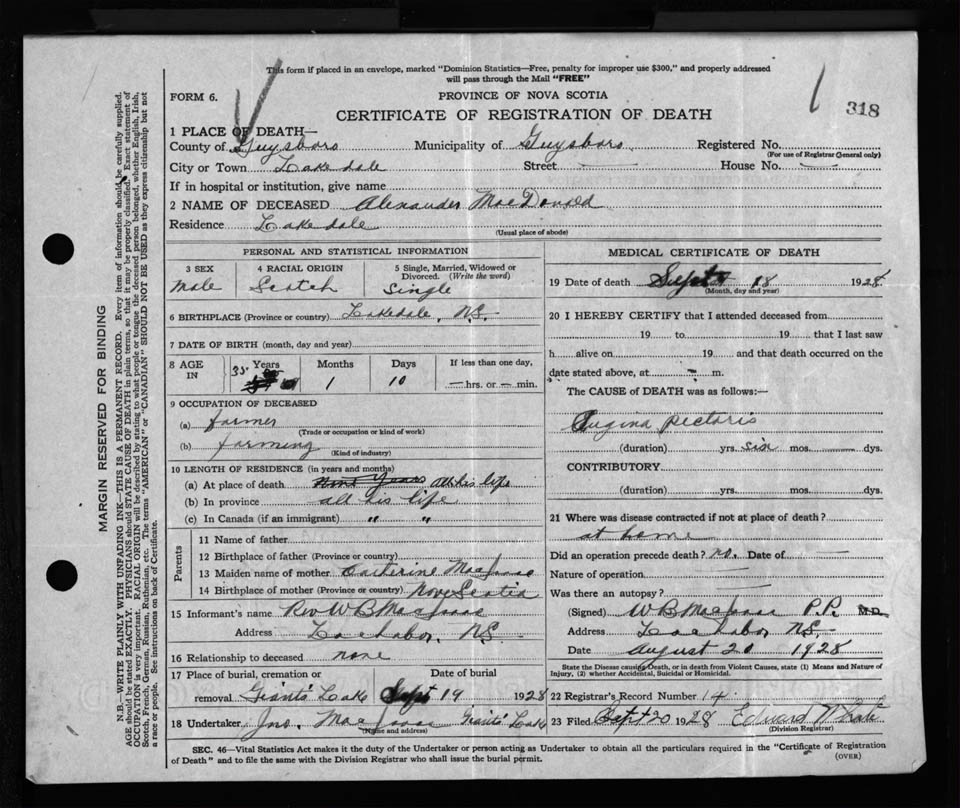 This form if placed in an envelope, marked "Dominion Statistics—Free, penalty for improper use $300," and properly addressed
will pass through the Mail "FREE"
FORM 6.
PROVINCE OF NOVA SCOTIA
318
CERTIFICATE OF REGISTRATION OF DEATH
1 PLACE OF DEATH—
County of Guysboro Municipality of Guysboro Registered No.
(For use of Registrar General only)
City or Town Lakedale Street — House No. —
If in hospital or institution, give name
2 NAME OF DECEASED Alexander MacDonald
Residence Lakedale
(Usual place of abode)
PERSONAL AND STATISTICAL INFORMATION
3 SEX
male
4 RACIAL ORIGIN
Scotch
5 Single, Married, Widowed or
Divorced. (Write the word)
Single
6 BIRTHPLACE (Province or country) Lakedale, N.S.
7 DATE OF BIRTH (month, day and year)
8 AGE
IN
Years
35
Months
1
Days
10
If less than one day,
— hrs. or — min.
9 OCCUPATION OF DECEASED
(a) farmer
(Trade or occupation or kind of work)
(b) farming
(Kind of industry)
10 LENGTH OF RESIDENCE (in years and months)
(a) At place of death all his life
(b) In province all his life
(c) In Canada (if an immigrant) " "
Parents
11 Name of father
12 Birthplace of father (Province or country)
13 Maiden name of mother Catherine MacIsaac
14 Birthplace of mother (Province or country) Nova Scotia
15 Informant's name Rev W B MacIsaac
Address Lochabor, N.S.
16 Relationship to deceased none
17 Place of burial, cremation or
Date of burial
removal Giants Lake Sept 19 1928
18 Undertaker Jno. MacIsaac Giants Lake
(Name and address)
MEDICAL CERTIFICATE OF DEATH
19 Date of death Sept 18 1928
(Month, day and year)
20 I HEREBY CERTIFY that I attended deceased from
19 to 19 that I last saw
h alive on 19 and that death occurred on the
date stated above, at - m.
The CAUSE OF DEATH was as follows:—
Angina pectoris
(duration) yrs. six mos. dys.
CONTRIBUTORY
(duration) yrs. mos. dys.
21 Where was disease contracted if not at place of death?
at home
Did an operation precede death? no. Date of —
Nature of operation —
Was there an autopsy? —
(Signed) W B MacIsaac P.P. M.D.
Address Lochabor N.S.
Date August 20 1928
State the Disease causing Death, or in death from Violent Causes, state (1) Means and Nature of
Injury, (2) whether Accidental, Suicidal or Homicidal.
22 Registrar's Record Number 14
23 Filed Sept 20 1928 Edward
(Division Registrar)
SEC. 46—Vital Statistics Act makes it the duty of the Undertaker or person acting as Undertaker to obtain all the particulars required in the "Certificate of Registration
of Death" and to file the same with the Division Registrar who shall issue the burial permit.
(OVER)
MARGIN RESERVED FOR BINDING
N.B.—WRITE PLAINLY WITH UNFADING INK—THIS IS A PERMANENT RECORD. Every item of information should be carefully supplied.
AGE should be stated EXACTLY. PHYSICIANS should STATE CAUSE OF DEATH in plain terms, so that it may be properly classified. Exact statement of
OCCUPATION is very important. RACIAL ORIGIN will be described by stating to what people or tongue the deceased person belonged, whether English, Irish,
Scotch, French, German, Russian, Ruthenian, etc. The terms "AMERICAN" or "CANADIAN" SHOULD NOT BE USED as they express citizenship but not
a race or people. See instructions on back of Certificate.